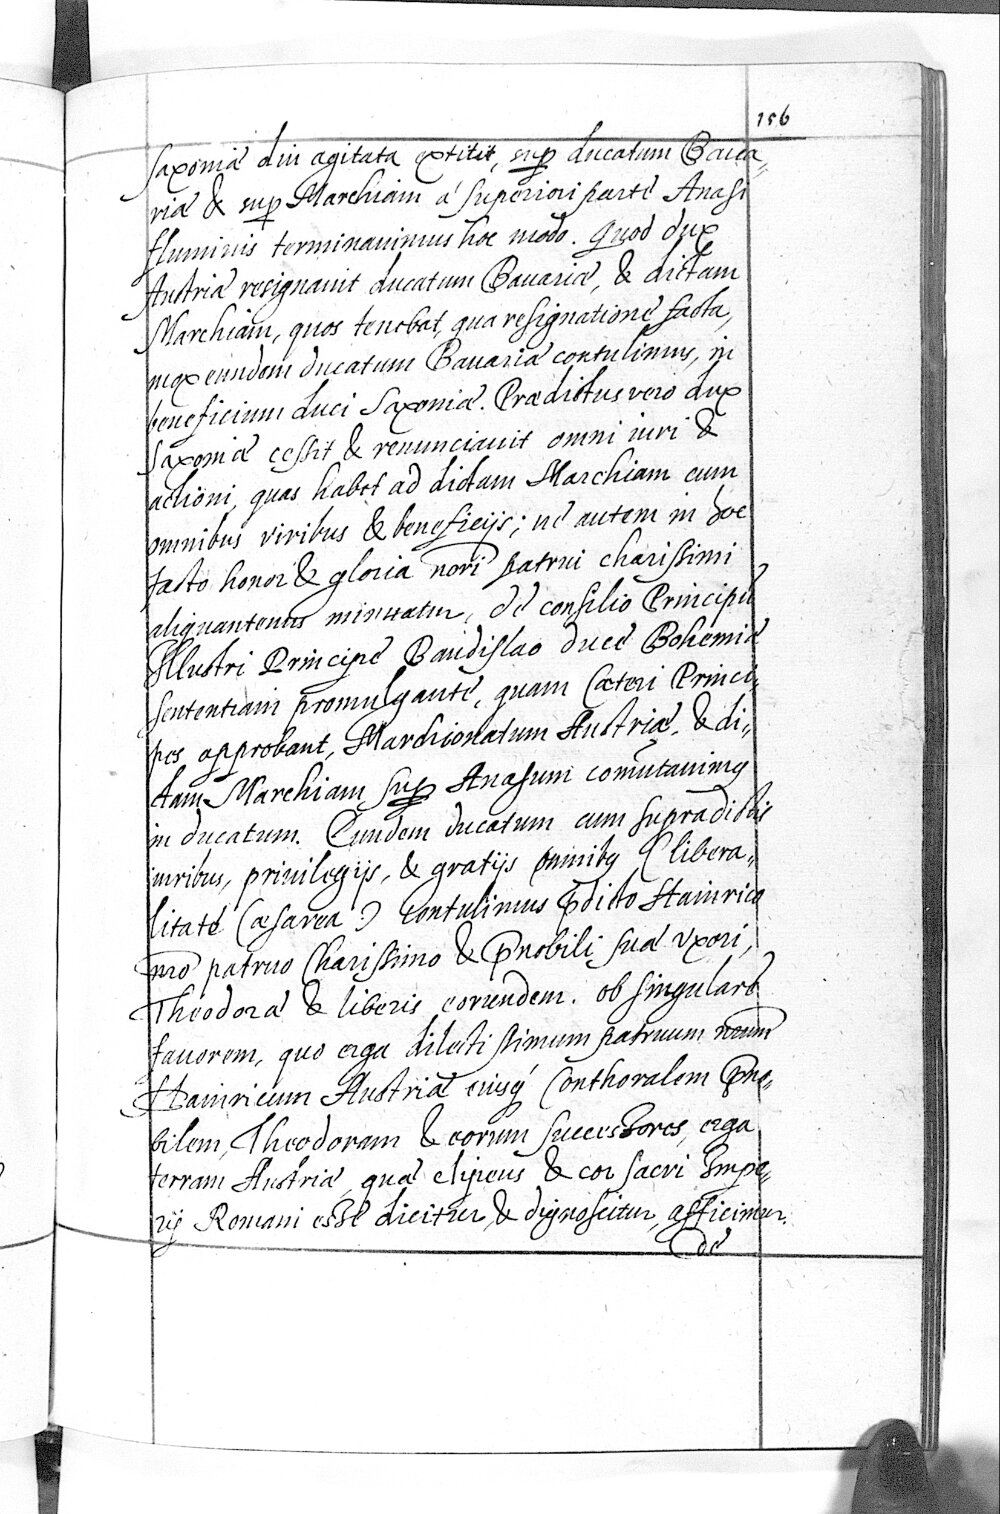 156
Saxoniæ diu agitata extitit, sup ducatum Bava„
riæ & sup Marchiam á superiori parte Anasi
fluminis terminauimus hoc modo. Quod dux
Austriæ resignauit ducatum Bauariæ, & dictam
Marchiam, quos tenebat, qua resignatione facta,
mox eundem ducatum Bauariæ contulimus, in
beneficium duci Saxoniæ. Prædictus vero dux
Saxoniæ cessit & renunciauit omni iuri &
actioni, quas habet ad dictam Marchiam cum
omnibus viribus & beneficijs; ne autem in hoc
facto honor & gloria nori patrui charissimi
aliquantenus minuatur, de consilio Principū
Illustri Principe Baudislao duce Bohemiæ
sententiam promulgante, quam Cæteri Princi„
pes approbant, Marchionatum Austriæ, & di„
ctam Marchiam sup Anasum comutauimꝰ
in ducatum. Eundem ducatum cum supradictis
iuribus, priuilegijs, & gratijs omnibꝰ (libera„
litate Cæsarea) contulimus pdicto Hainrico
nro patruo Charissimo & pnobili suæ vxori,
Theodoræ & liberis eorundem. ob singularē
fauorem, quo erga dilectissimum patruum nrum
Hainricum Austriæ eiusq́ Conthoralem pno„
bilem, Theodoram & eorum successores, erga
terram Austriæ, quæ clipeus & cor sacri Impe„
rij Romani esse dicitur, & dignoscitur, afficimur.
de